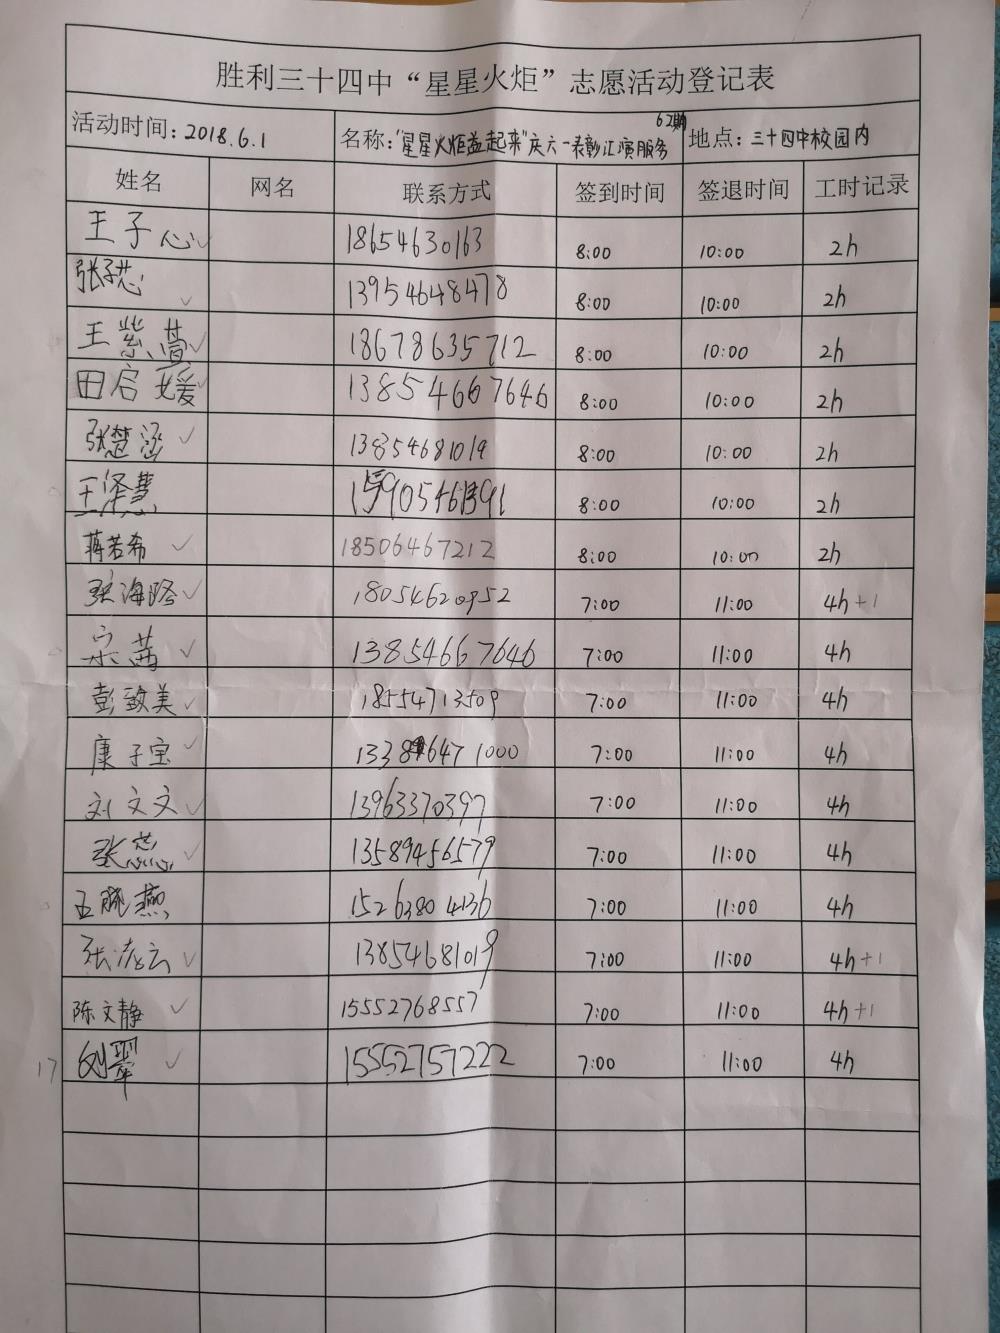 胜利三十四中“星星火炬”志愿活动登记表
活动时间：2018.6.1 名称：“星星火炬益起来”庆六一表彰汇演服务 62期 地点：三十四中校园内
姓名 网名 联系方式 签到时间 签退时间 工时记录
王子心 ✓ 18654630163 8:00 10:00 2h
张子芯 ✓ 13954648478 8:00 10:00 2h
王紫萱 ✓ 18678635712 8:00 10:00 2h
田启媛 ✓ 13854667646 8:00 10:00 2h
张楚涵 ✓ 13854681019 8:00 10:00 2h
王泽慧 8:00 10:00 2h
蒋若希 ✓ 18506467212 8:00 10:00 2h
张海路 ✓ 18054620952 7:00 11:00 4h+1
宋茜 ✓ 13854667646 7:00 11:00 4h
彭致美 ✓ 18554713509 7:00 11:00 4h
康子宝 ✓ 7:00 11:00 4h
刘文文 ✓ 13963370397 7:00 11:00 4h
张蕊 ✓ 13589456579 7:00 11:00 4h
王晓燕 15263804136 7:00 11:00 4h
张凌云 ✓ 13854681019 7:00 11:00 4h+1
陈文静 ✓ 15552768557 7:00 11:00 4h+1
17 刘翠 ✓ 15552757222 7:00 11:00 4h